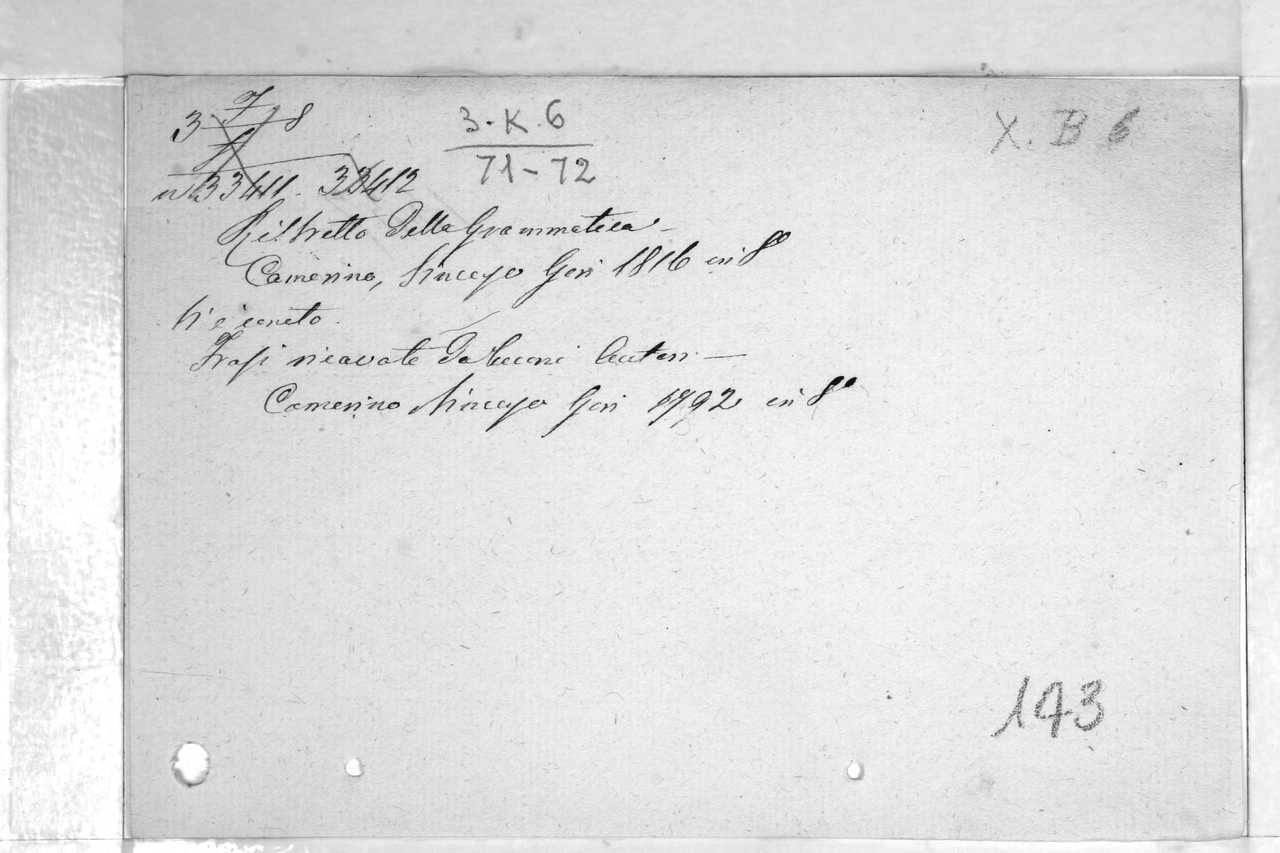 3 7 8
3.K.6
X. B 6
71-72
n 33411. 33412
Ristretto della Grammatica
Camerino, Vincenzo Gori 1816 in 8°
Vi è unito
Frasi ricavate da buoni Autori
Camerino Vincenzo Gori 1792 in 8°
143